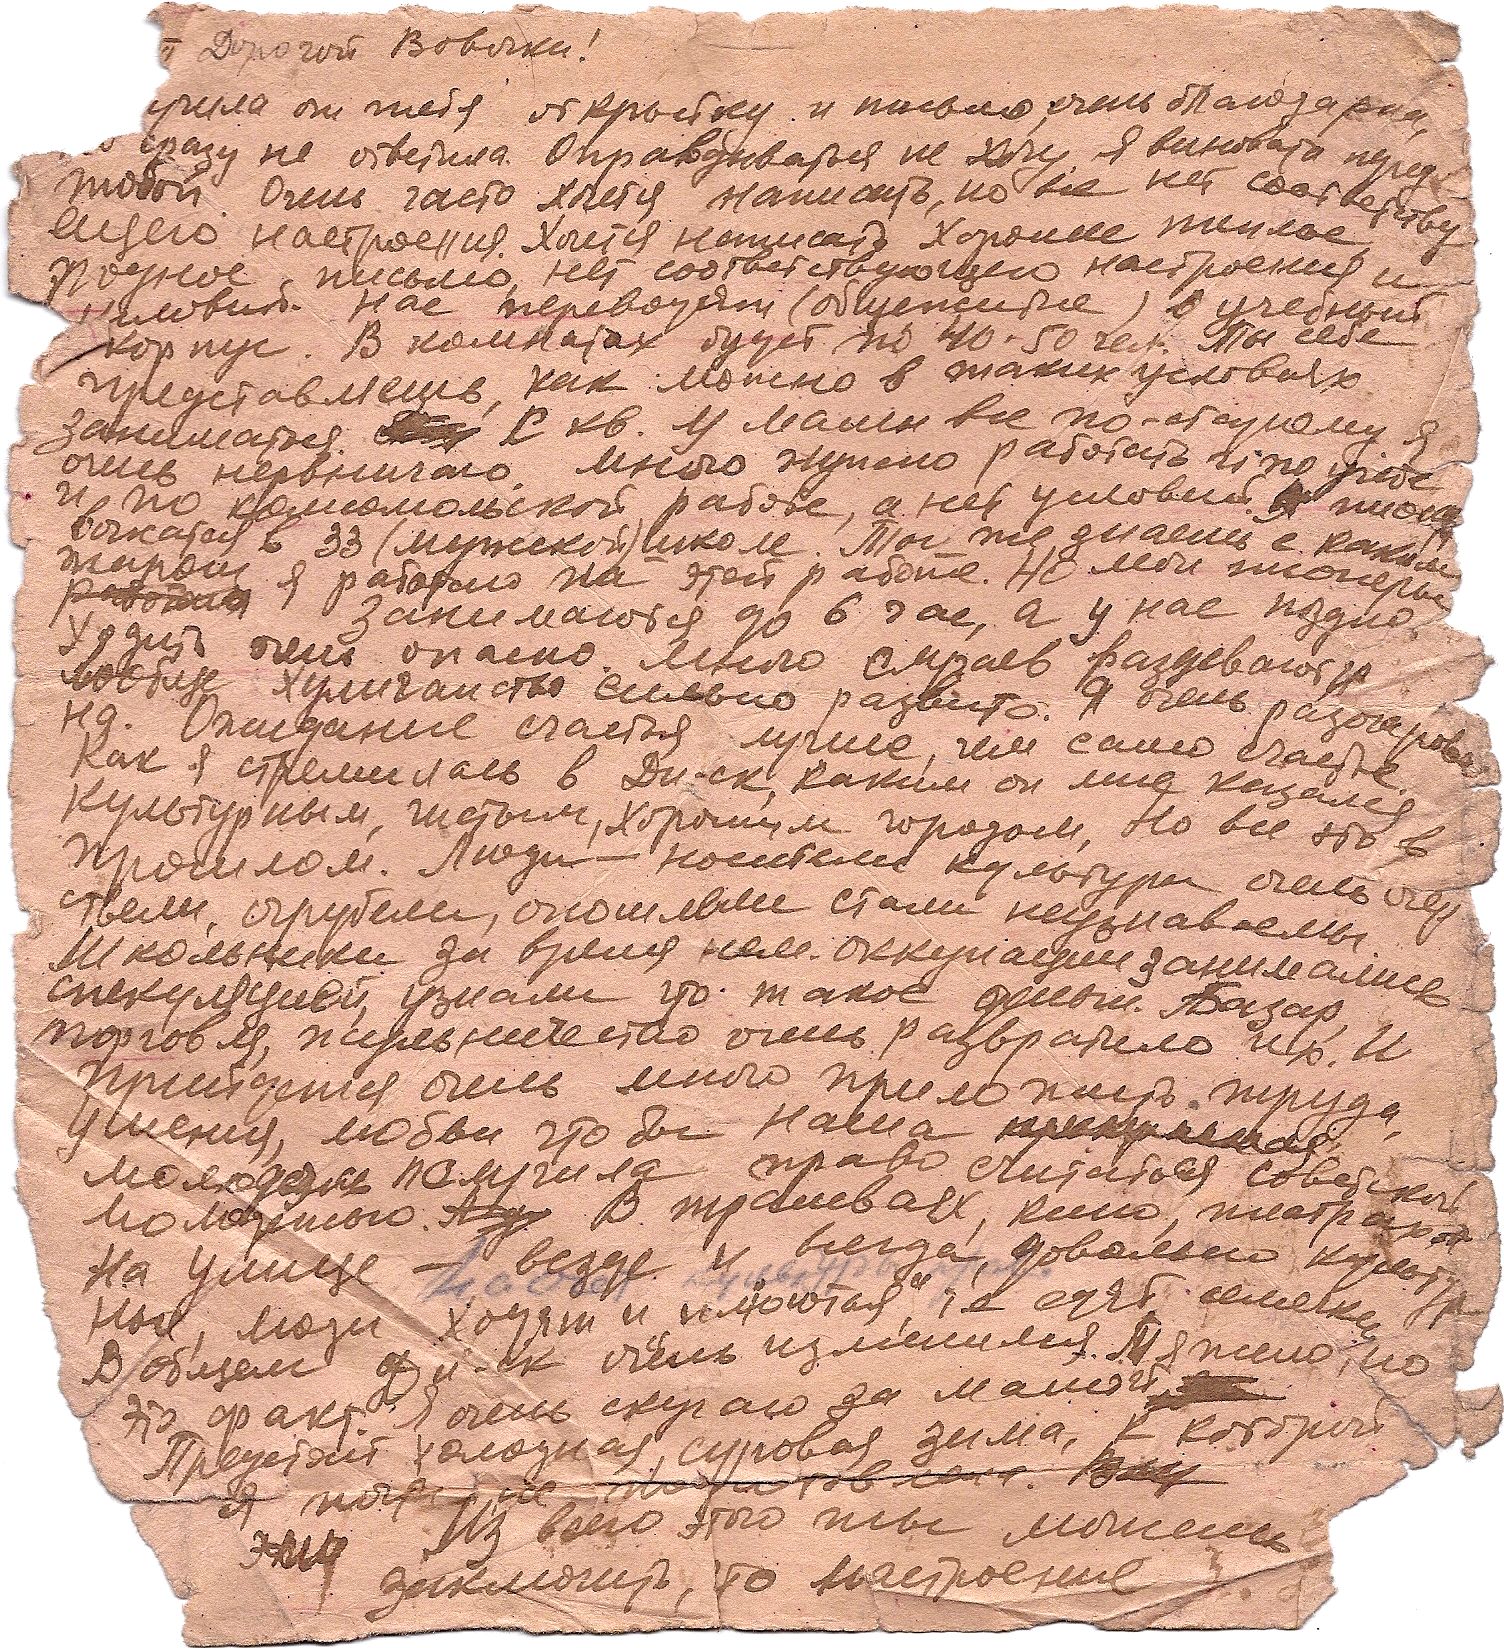 Дорогой Вовочка!
учила от тебя открытку и письмо, очень благодарна,
сразу не ответила. Оправдываться не хочу, я виновата перед
тобой. Очень часто хочется написать, но все нет соответству
ющего настроения. Хочется написать хорошее теплое,
родное письмо, нет соответствующего настроения и
условий. Нас переводят (общежитие) в учебный
корпус. В комнатах будет по 40-50 чел. Ты себе
представляешь, как можно в таких условиях
заниматься. С кв. у мамы все по-старому я
очень нервничаю. Много нужно работать и по учебе
и по комсомольской работе, а нет условий. Я
вожатая в 33 (мужской) школе. Ты же знаешь с каким
жаром я работаю на этой работе. Но мои пионеры
занимаются до 6 час, а у нас поздно
ходить очень опасно. Много случаев раздевают и
вообще хулиганство сильно развито. Я очень разочарова
на. Ожидание счастья лучше, чем само счастье.
Как я стремилась в Дн-ск, каким он мне казался
культурным, чистым, хорошим городом, но все это в
прошлом. Люди — носители культуры очень очер
ствели, огрубели, опошлели стали неузнаваемы
Школьники за время нем. оккупации занимались
спекуляцией, узнали что такое деньги. Базар,
торговля, жульничество очень развратило их. И
прийдется очень много приложить труда,
умения, любви чтобы наша
молодежь получила право считаться советской
молодежью. В трамваях, кино, театрах
на улице — везде и всегда, довольно культур
ные, люди ходят и "плюются", т.е. едят семечки
В общем Дн-ск очень изменился. Тяжело, но
это факт. Я очень скучаю за мамой
Предстоит холодная, суровая зима, к которой
я пока не подготовлена.
Из всего этого ты можешь
заключить, что настроение